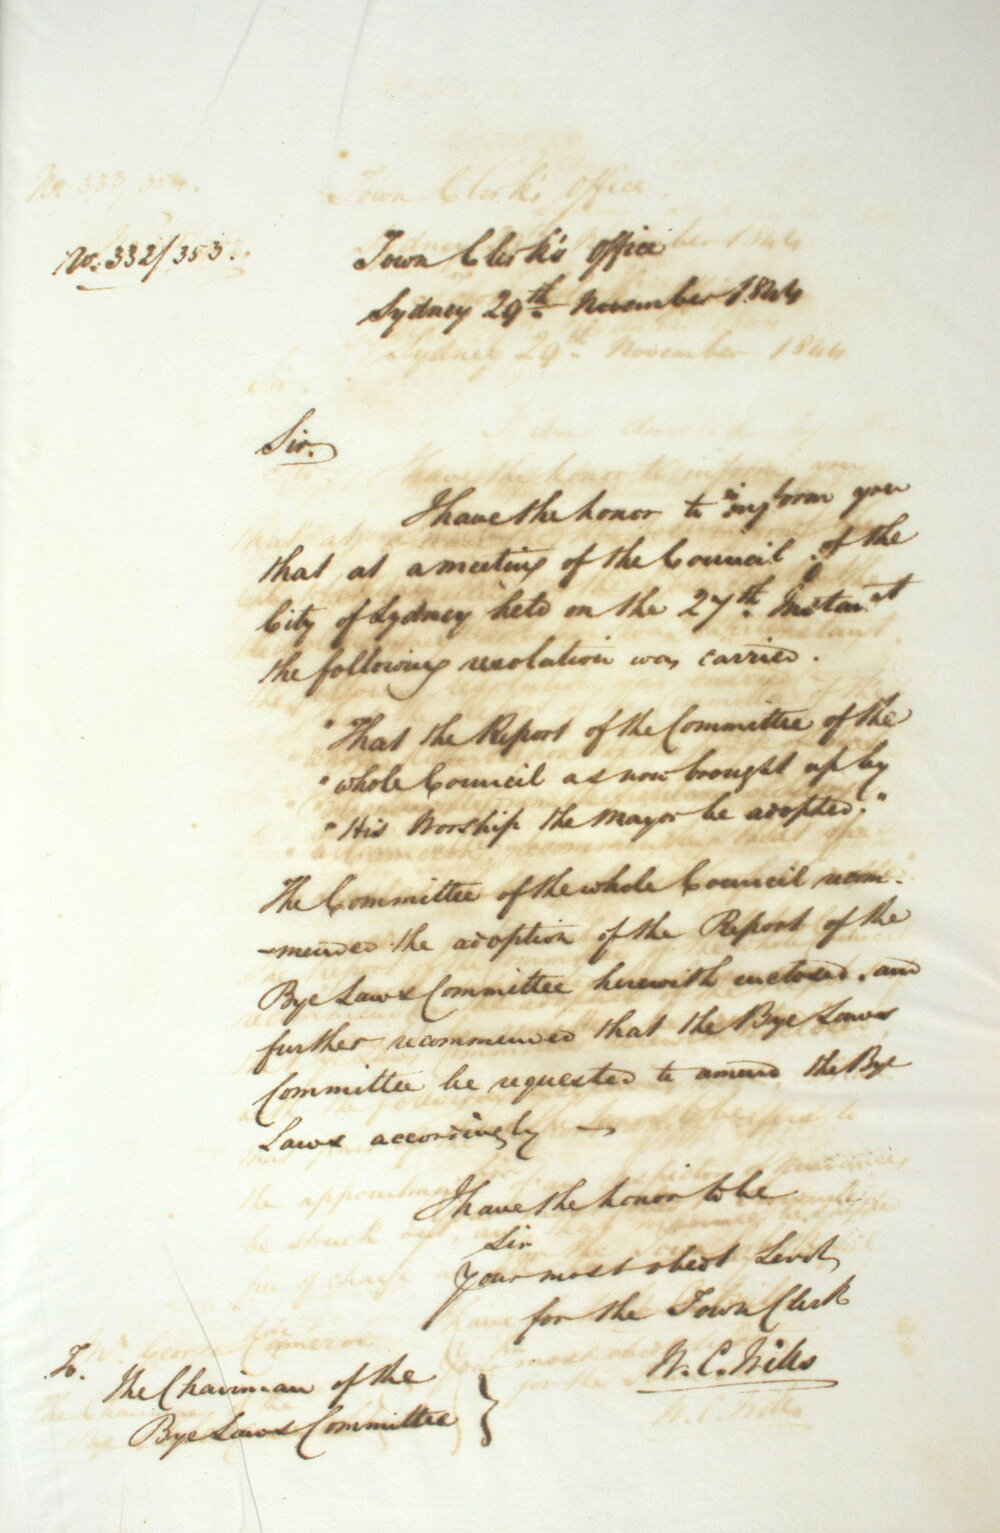 No. 332/353.
Town Clerk's Office
Sydney 29th November 1844
Sir.
I have the honor to inform you
that at a meeting of the Council of the
City of Sydney held on the 27th Instant
the following resolution was carried.
"That the Report of the Committee of the
"whole Council as now brought up by
"His Worship the Mayor be adopted."
The Committee of the whole Council recom-
-mended the adoption of the Report of the
Bye Laws Committee herewith enclosed, and
further recommended that the Bye Laws
Committee be requested to amend the Bye
Laws accordingly —
I have the honor to be
Sir
Your most obedt Servt
for the Town Clerk
W. C. Wills
To.
The Chairman of the
Bye Laws Committee }